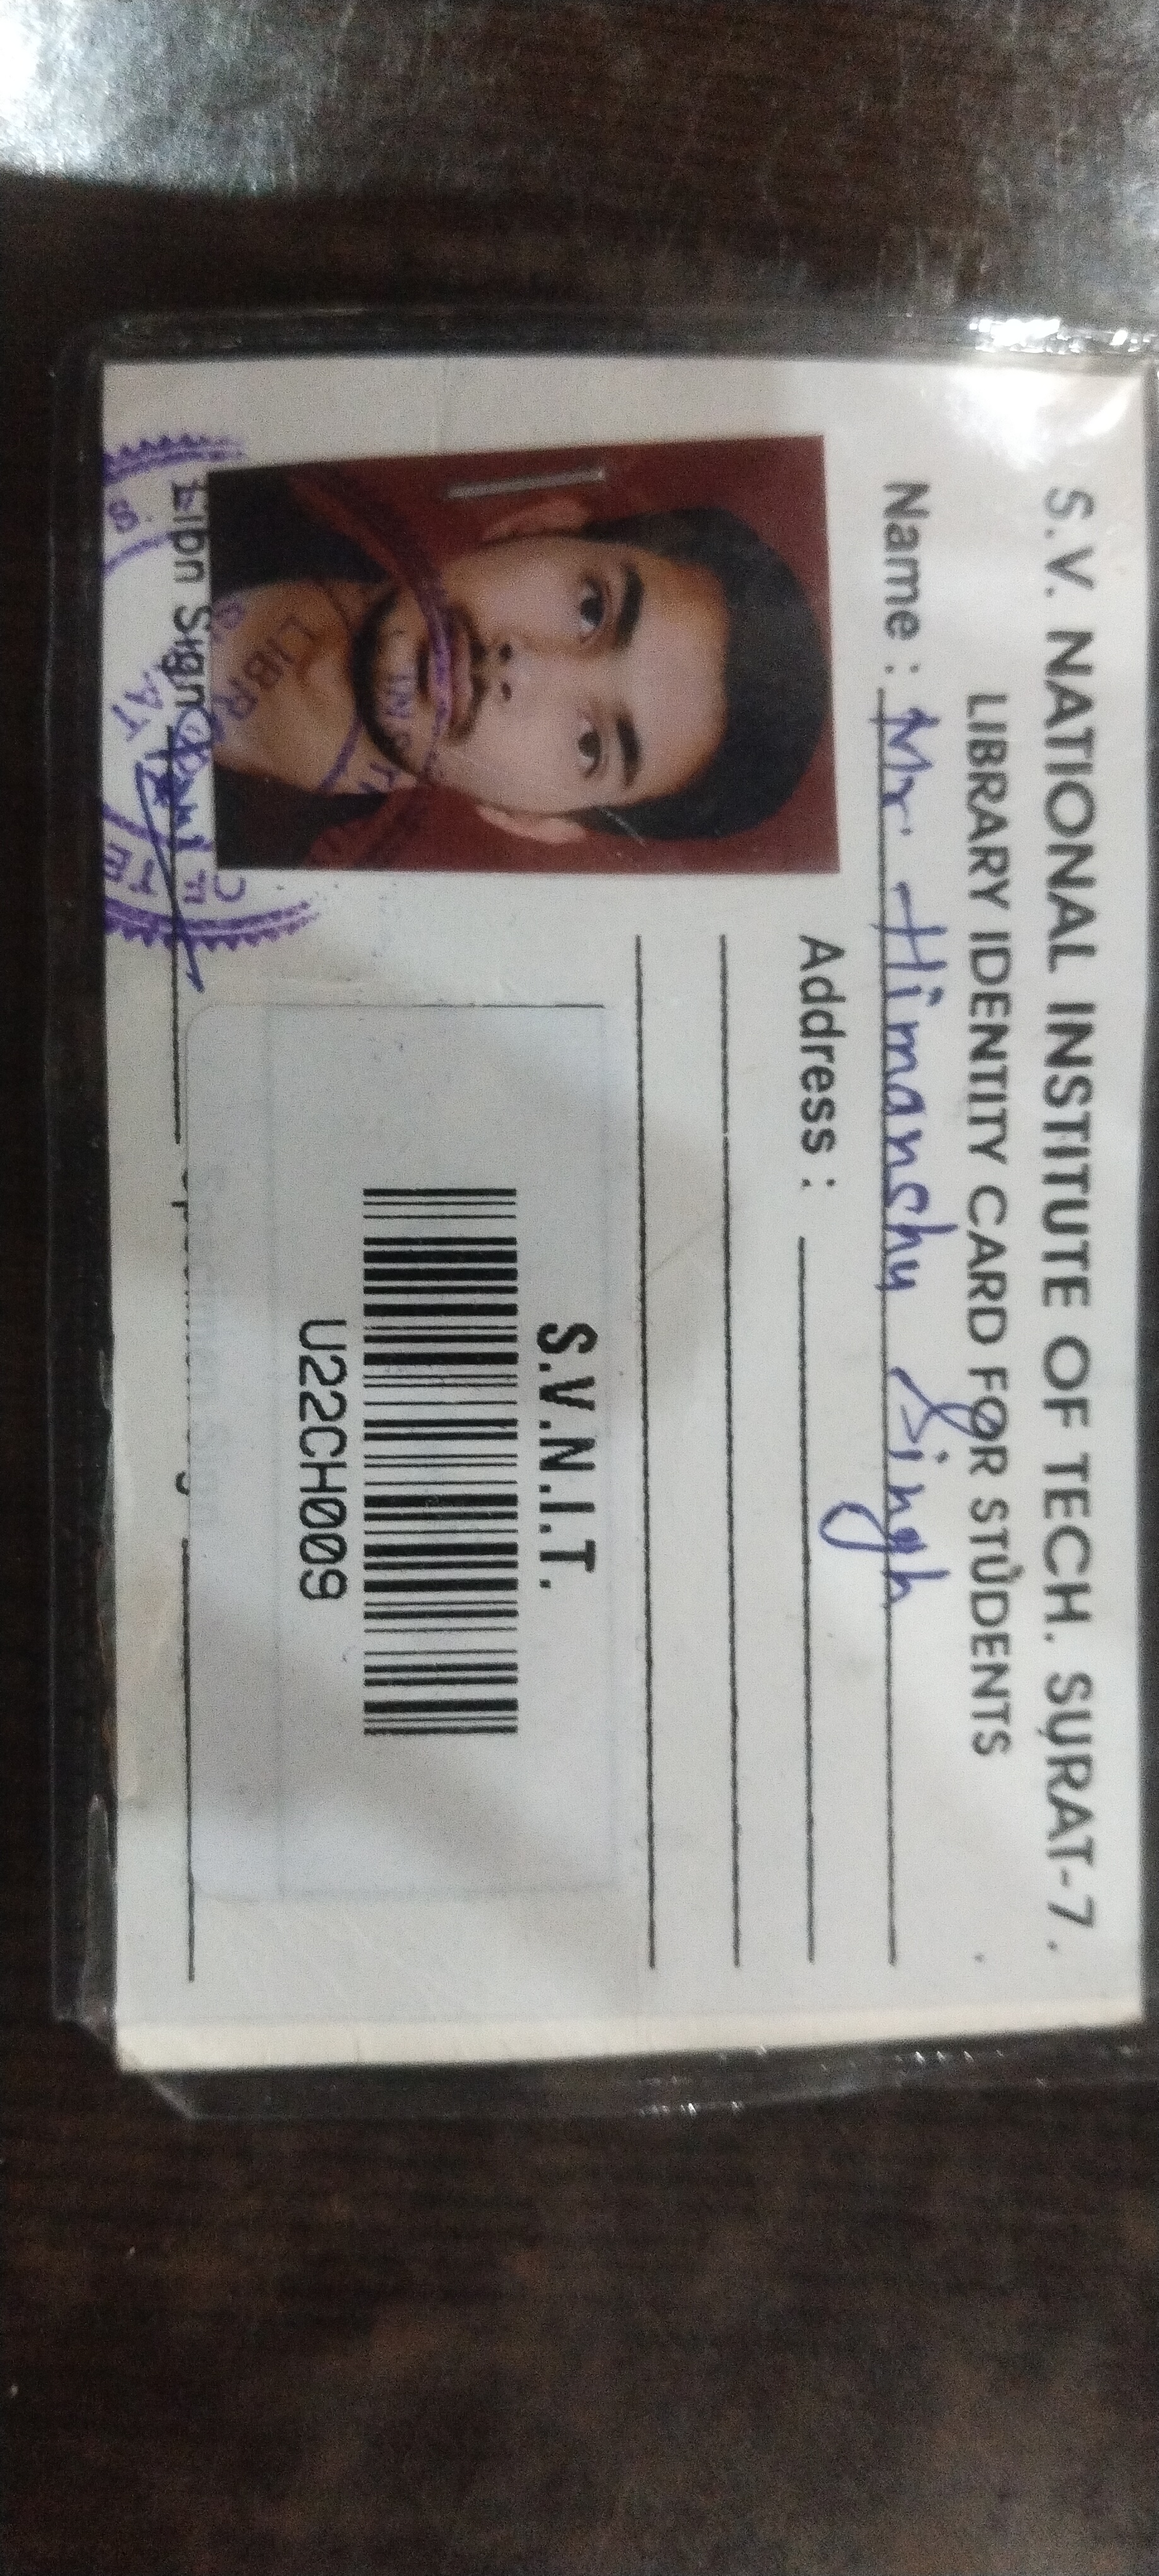 S.V. NATIONAL INSTITUTE OF TECH. SURAT-7.
LIBRARY IDENTITY CARD FOR STUDENTS
Name : Mr. Himanshu Singh
Address :
S.V.N.I.T.
U22CH009
Libn Sign